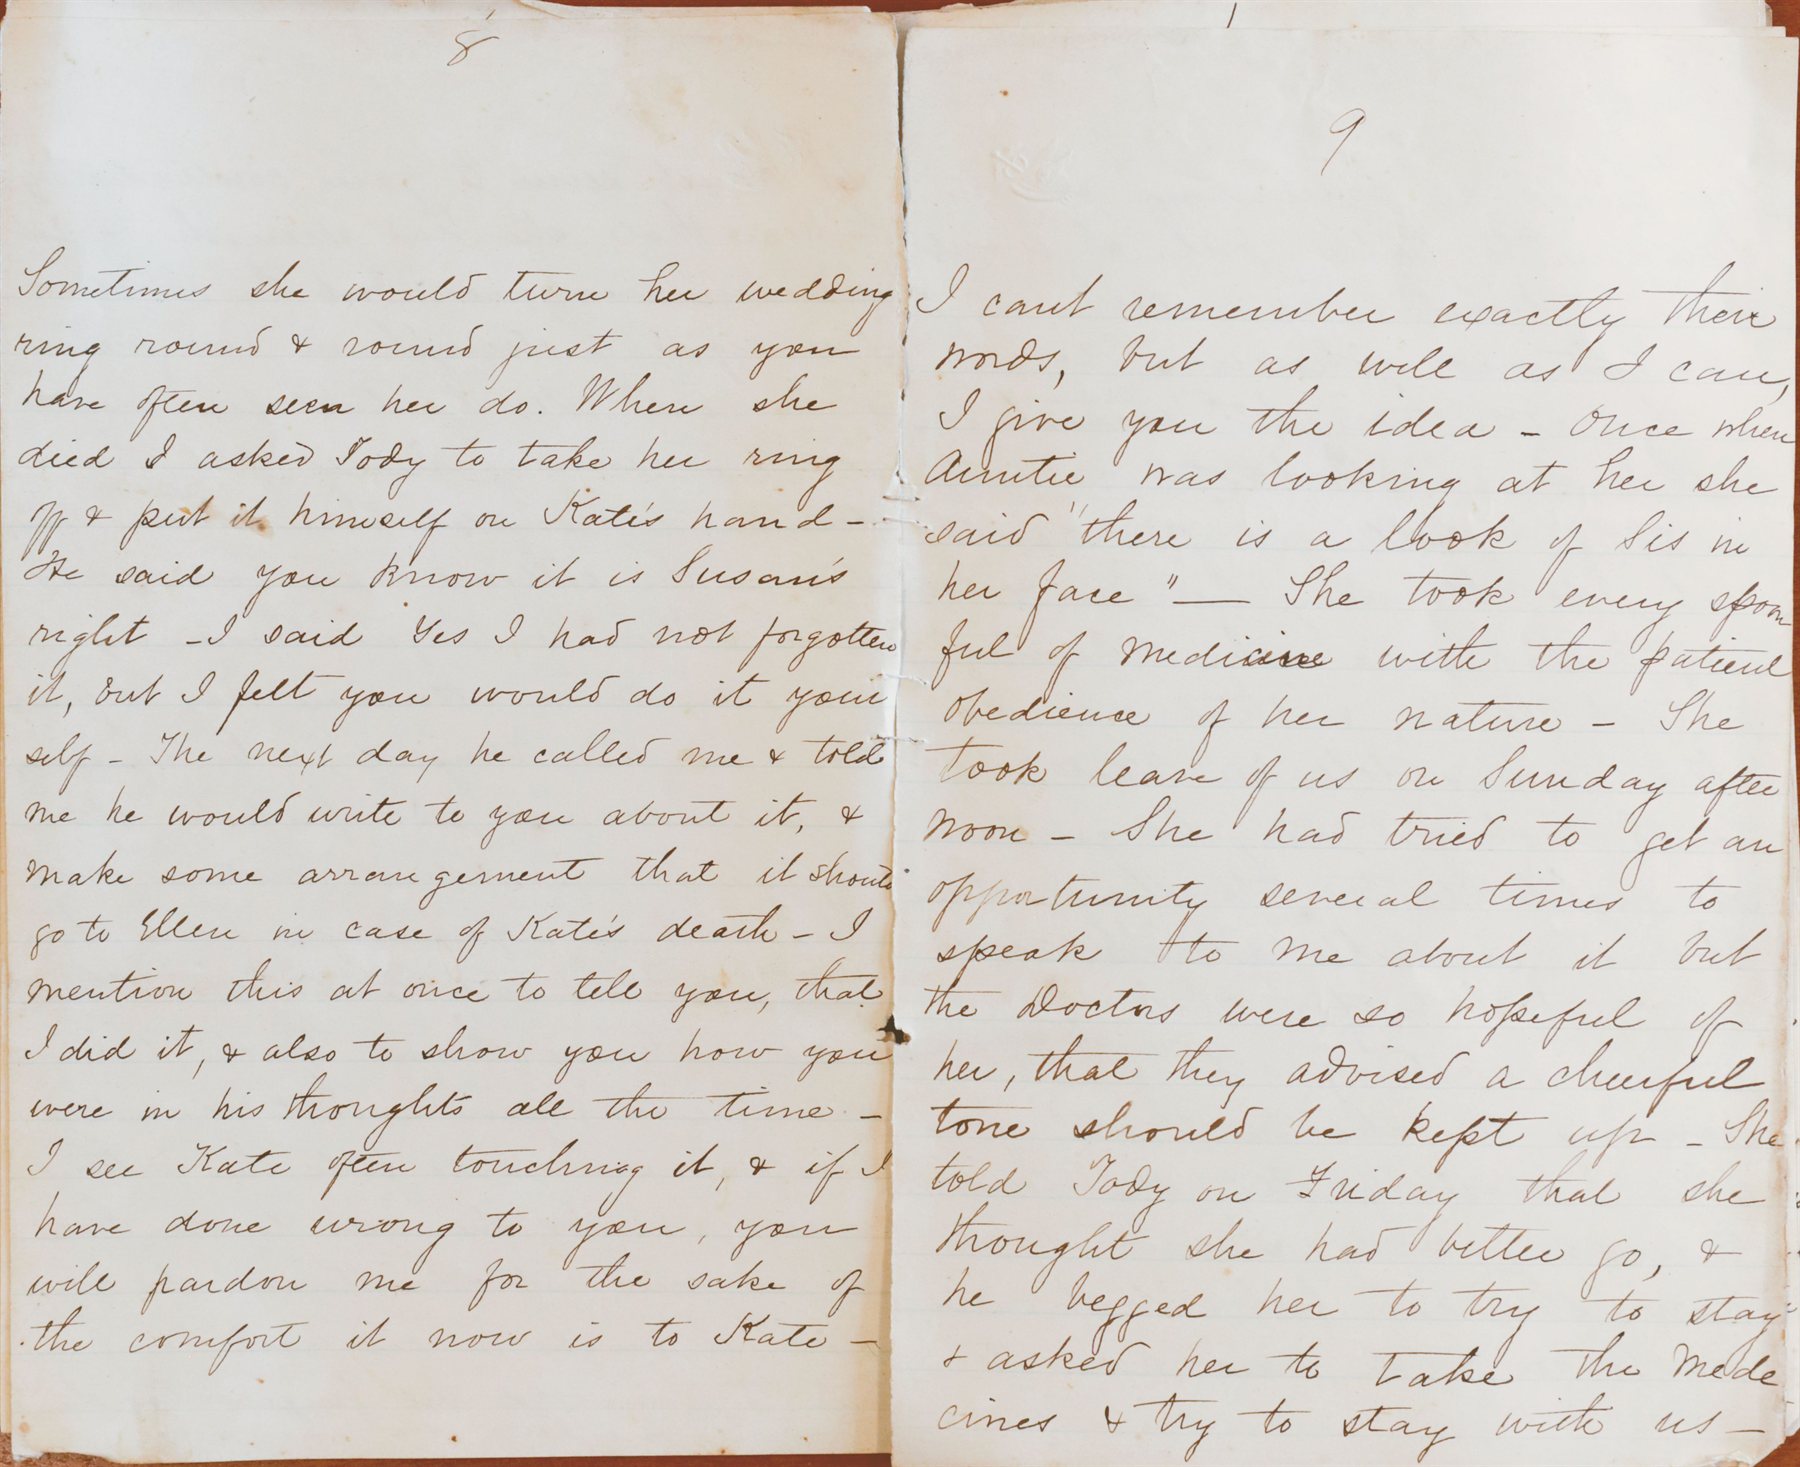 8
Sometimes she would turn her wedding
ring round & round just as you
have often seen her do. When she
died I asked Tody to take her ring
off & put it himself on Kate's hand -
He said you know it is Susan's
right - I said Yes I had not forgotten
it, but I felt you would do it your
self - The next day he called me & told
me he would write to you about it, &
make some arrangement that it should
go to Ellen in case of Kate's death - I
mention this at once to tell you, that
I did it, & also to show you how you
were in his thoughts all the time -
I see Kate often touching it, & if I
have done wrong to you, you
will pardon me for the sake of
the comfort it now is to Kate -
9
I cant remember exactly their
words, but as well as I can,
I give you the idea - Once when
Auntie was looking at her she
said "there is a look of Sis in
her face" - She took every spoon
ful of medicine with the patient
obedience of her nature - She
took leave of us on Sunday after
noon - She had tried to get an
opportunity several times to
speak to me about it but
the Doctors were so hopeful of
her, that they advised a cheerful
tone should be kept up - She
told Tody on Friday that she
thought she had better go, &
he begged her to try to stay
& asked her to take the Mede
cines & try to stay with us -